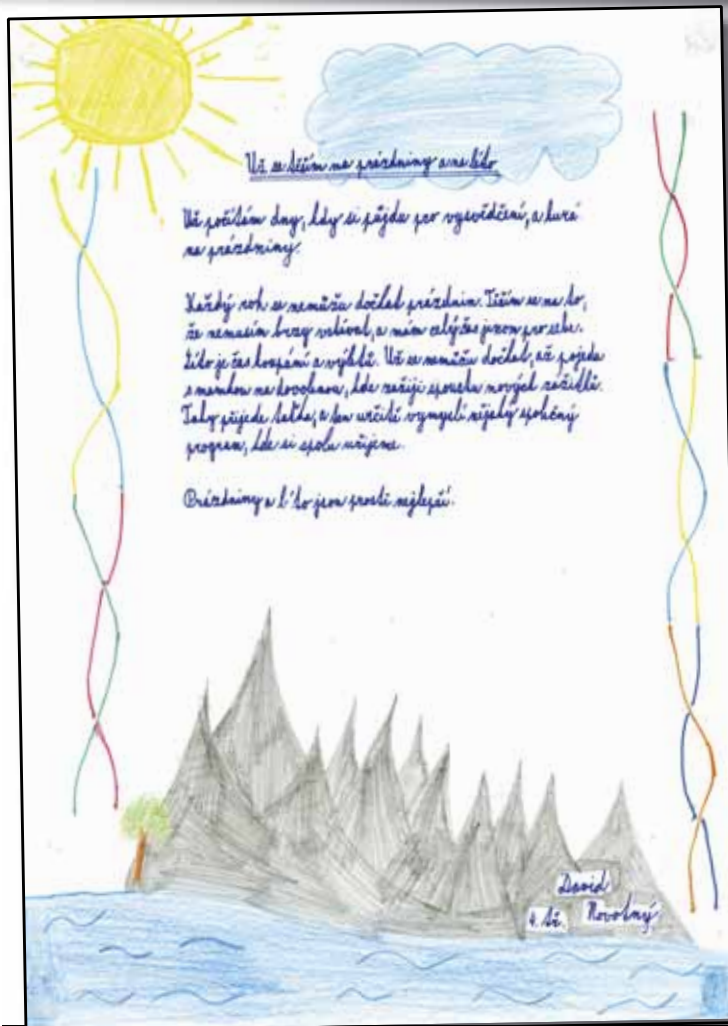 Už se těším na prázdniny a na léto
Už počítám dny, kdy si půjdu pro vysvědčení, a hurá
na prázdniny.
Každý rok se nemůžu dočkat prázdnin. Těším se na to,
že nemusím brzy vstávat, a mám celý čas jenom pro sebe.
Léto je čas koupání a výletů. Už se nemůžu dočkat, až pojedu
s mamkou na dovolenou, kde zažiji spoustu nových zážitků.
Taky přijede taťka, a ten určitě vymyslí nějaký společný
program, kde si spolu užijeme.
Prázdniny a léto jsou prostě nejlepší.
David
4. tř. Novotný